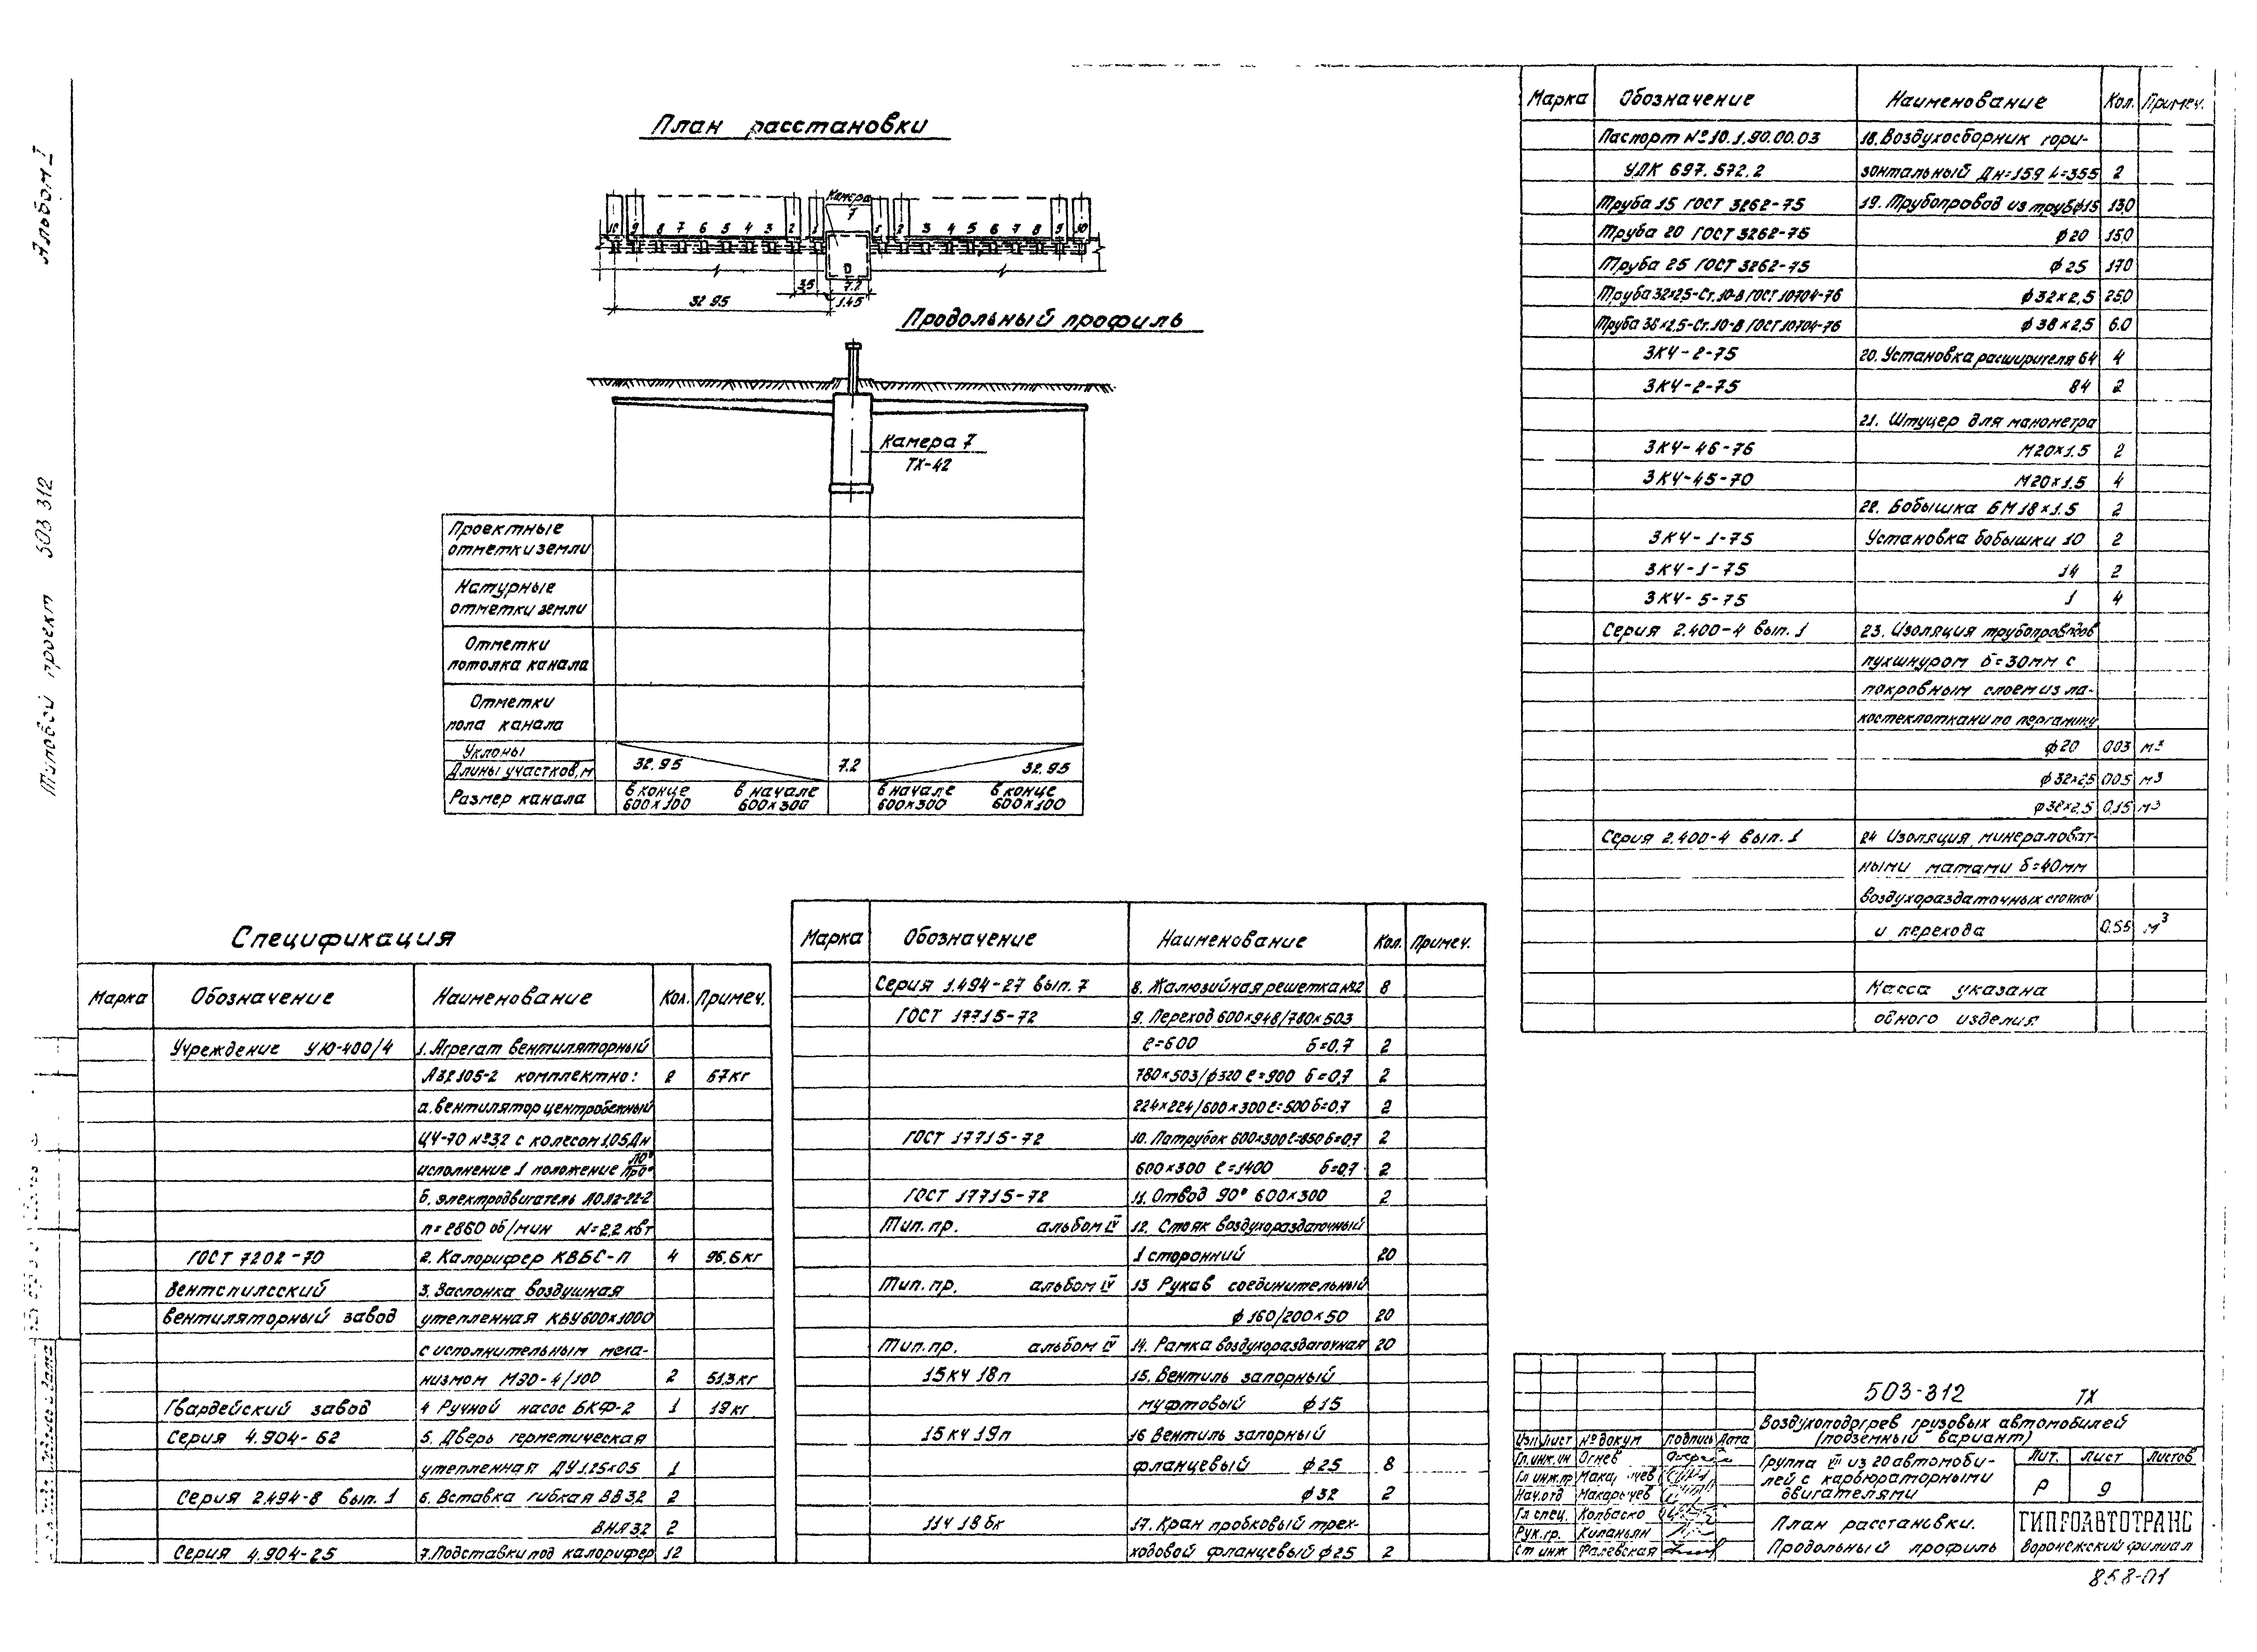 Альбом I
Типовой проект 503 312
План расстановки
Камера
7
10 9 8 7 6 5 4 3 2 1
1 2 3 4 5 6 7 8 9 10
3,5 7.2
32 95 1.45
Продольный профиль
Камера 7
ТХ-42
Проектные
отметки земли
Натурные
отметки земли
Отметки
потолка канала
Отметки
пола канала
Уклоны
Длины участков, м 32.95 7.2 32.95
Размер канала в конце в начале в начале в конце
600×100 600×300 600×300 600×100
Спецификация
Марка Обозначение Наименование Кол. Примеч.
Учреждение УЮ-400/4 1. Агрегат вентиляторный
А32105-2 комплектно: 2 67кг
а. вентилятор центробежный
Ц4-70 №3,2 с колесом 1,05Дн
исполнение 1 положение Л0°/Пр0°
б. электродвигатель АОЛ2-22-2
n=2860 об/мин N=2,2 квт
ГОСТ 7202-70 2. Калорифер КВБ6-П 4 96,6кг
Вентспилсский 3. Заслонка воздушная
вентиляторный завод утепленная КВУ600×1000
с исполнительным меха-
низмом МЭО-4/100 2 51,3кг
Гвардейский завод 4 Ручной насос БКФ-2 1 19кг
Серия 4.904-62 5. Дверь герметическая
утепленная ДУ1.25×0.5 1
Серия 2.494-8 вып. 1 6. Вставка гибкая ВВ3,2 2
ВНЯ3,2 2
Серия 4.904-25 7. Подставки под калорифер 12
Марка Обозначение Наименование Кол. Примеч.
Серия 1.494-27 вып. 7 8. Жалюзийная решетка №2 8
ГОСТ 17715-72 9. Переход 600×948/780×503
ℓ=600 δ=0,7 2
780×503/ф320 ℓ=900 δ=0,7 2
224×224/600×300 ℓ=500 δ=0,7 2
ГОСТ 17715-72 10. Патрубок 600×300 ℓ=850 δ=0,7 2
600×300 ℓ=1400 δ=0,7 2
ГОСТ 17715-72 11. Отвод 90° 600×300 2
Тип. пр. альбом IV 12. Стояк воздухораздаточный
1 сторонний 20
Тип. пр. альбом IV 13 Рукав соединительный
ф 160/200×50 20
Тип. пр. альбом IV 14. Рамка воздухораздаточная 20
15КЧ 18п 15. Вентиль запорный
муфтовый ф15
15КЧ 19п 16 Вентиль запорный
фланцевый ф25 8
ф32 2
11Ч 18 бк 17. Кран пробковый трех-
ходовой фланцевый ф25 2
Марка Обозначение Наименование Кол. Примеч.
Паспорт №10.1.90.00.03 18. Воздухосборник гори-
УДК 697.572.2 зонтальный Дн=159 L=355 2
Труба 15 ГОСТ 3262-75 19. Трубопровод из труб ф15 13,0
Труба 20 ГОСТ 3262-75 ф20 15,0
Труба 25 ГОСТ 3262-75 ф25 17,0
Труба 32×2,5-Ст.10-В ГОСТ 10704-76 ф32×2,5 25,0
Труба 38×2,5-Ст.10-В ГОСТ 10704-76 ф38×2,5 6.0
ЗКЧ-2-75 20. Установка расширителя 64 4
ЗКЧ-2-75 84 2
21. Штуцер для манометра
ЗКЧ-46-76 М20×1.5 2
ЗКЧ-45-70 М20×1.5 4
22. Бобышка БМ18×1.5 2
ЗКЧ-1-75 Установка бобышки 10 2
ЗКЧ-1-75 14 2
ЗКЧ-5-75 1 4
Серия 2.400-4 вып. 1 23. Изоляция трубопроводов
пухшнуром δ=30мм с
покровным слоем из ла-
костеклоткани по пергамину
ф20 0,03 м³
ф32×2,5 0,05 м³
ф38×2,5 0,15 м³
Серия 2.400-4 вып. 1 24 Изоляция минераловат-
ными матами δ=40мм
воздухораздаточных стояков
и перехода 0.55 м³
Масса указана
одного изделия.
503-312 ТХ
Воздухоподогрев грузовых автомобилей
(подземный вариант)
Изм Лист № докум Подпись Дата
Гл. инж. ин Огнев
Гл инж. пр Макарычев
Нач. отд Макарычев
Гл спец. Колбаско
Рук. гр. Киланьян
Ст инж Фалевская
Группа VII из 20 автомоби-
лей с карбюраторными
двигателями
Лит. Лист Листов
Р 9
План расстановки.
Продольный профиль
ГИПРОАВТОТРАНС
Воронежский филиал
858-01